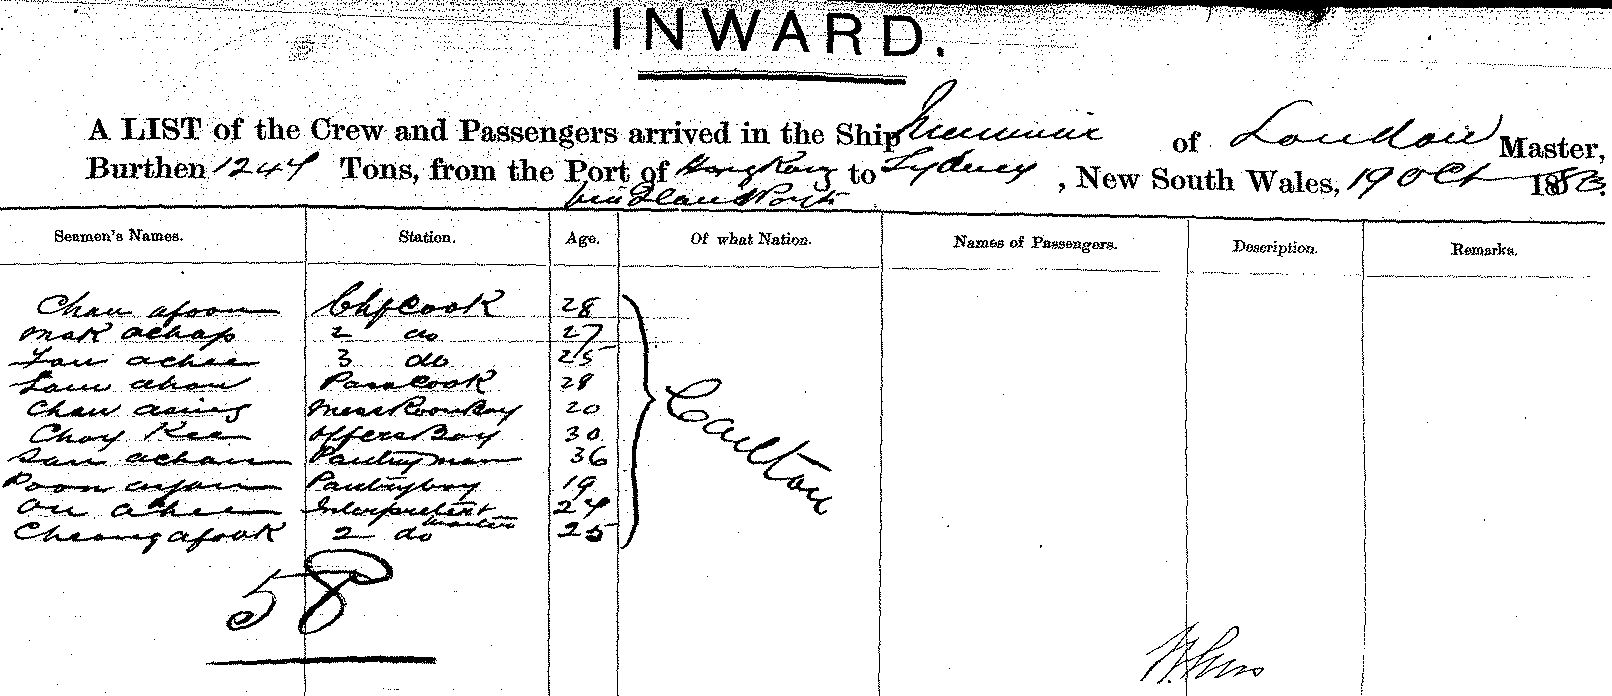 INWARD.
A LIST of the Crew and Passengers arrived in the Ship of London Master,
Burthen 1244 Tons, from the Port of Hong Kong to Sydney, New South Wales, 19 Oct 188
via Ports
Seamen's Names. Station. Age. Of what Nation. Names of Passengers. Description. Remarks.
Chau afoon Chfcook 28
Mak achap 2 do 27
achee 3 do 25
Lam ahau Passcook 28
Chau asing MessRoomBoy 20
Choy Kee OffersBoy 30
achau Pantryman 36
Poon Pantryboy 19
achee Interpreter & waiter 24
Cheong afook 2 do 25
Caulton
58